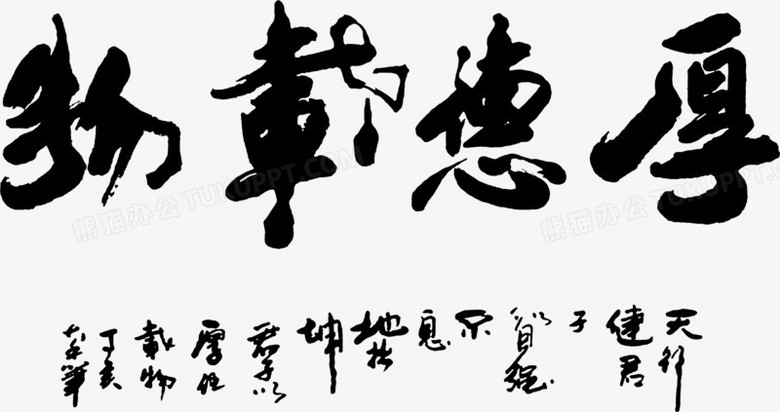 厚德載物
天行
健君
子
以自强
不
息
地势
坤
君子以
厚德
載物
丁亥
熊猫办公 TUKUPPT.COM
熊猫办公 TUKUPPT.COM